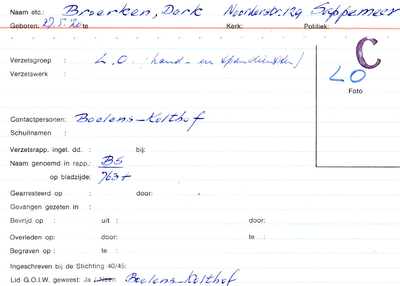 Naam etc.: Broerken, Derk Noorderstr. 129 Sappemeer
Geboren: 27.5.20 te Kerk: Politiek:
C
Verzetsgroep : L.O. (hand- en spandiensten) LO
Verzetswerk :
Foto
Contactpersonen: Boelens-Kolthof
Schuilnaam :
Verzetsrapp. ingel. dd. : bij:
Naam genoemd in rapp.: BS
op bladzijde: 763+
Gearresteerd op : door:
Gevangen gezeten in :
Bevrijd op : uit : door:
Overleden op: door: te :
Begraven op : te :
Ingeschreven bij de Stichting 40/45:
Lid G.O.I.W. geweest: Ja / Neen Boelens-Kolthof